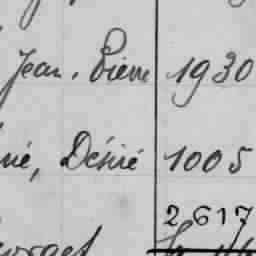 Jean, Pierre 1930
né, Désiré 1005
2617
eorges